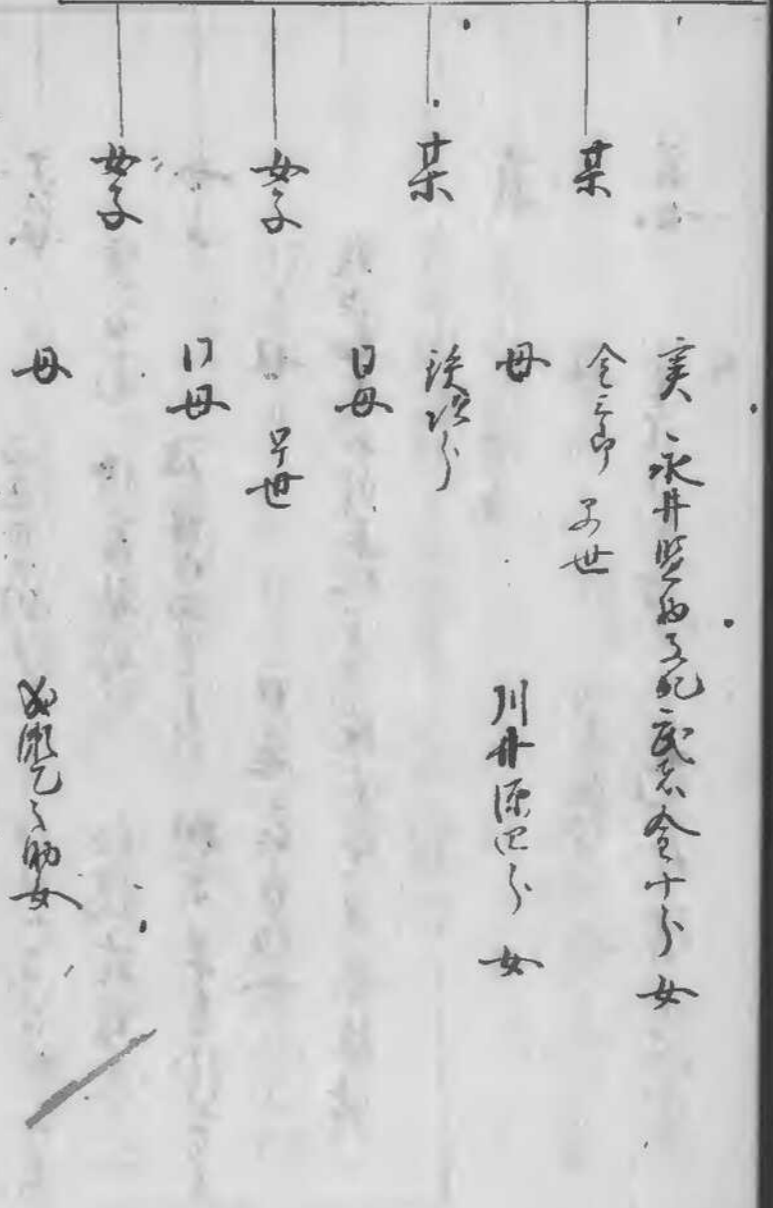 実 永井監物支配武蔵金十郎女
某 金三郎 早世
母 川井源四郎女
某 鉄次郎
同母
女子 早世
同母
女子
母 成瀬乙之助女